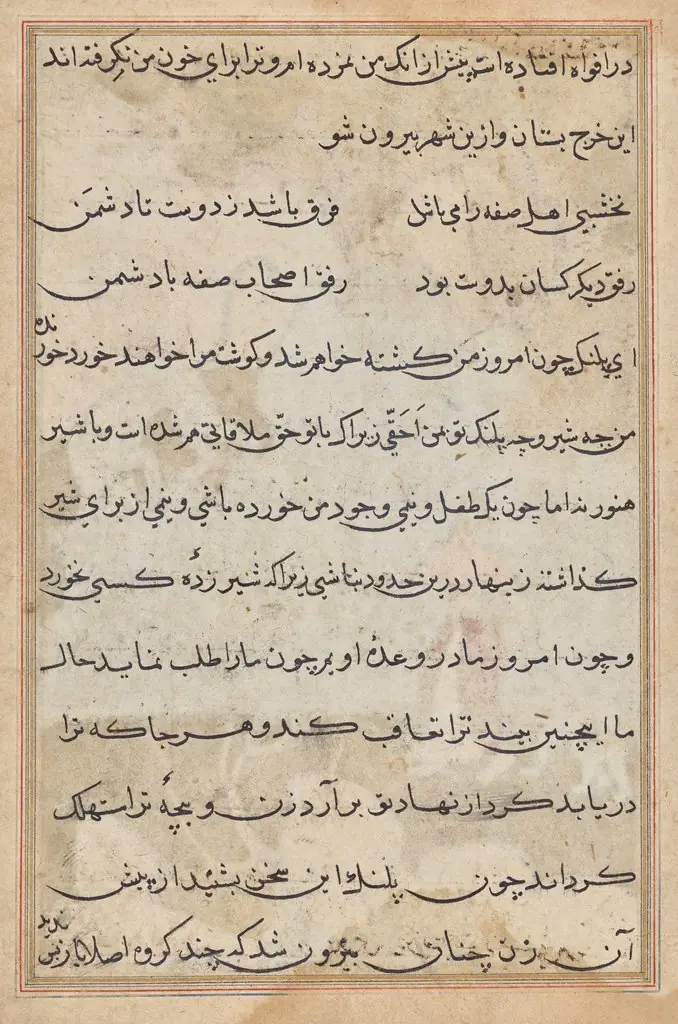 در افواه افتاده است پیش از انک من نمرده ام و ترا برای خون من نکرفته اند
این خرج بستان و ازین شهر بیرون شو
نخشبی اهل صفه را می باش فرق باشد ز دوست تا دشمن
رفق دیکر کسان بدوست بود رفق اصحاب صفه با دشمن
ای پلنک چون امروز من کشته خواهم شد و کوشت مرا خواهند خورد خورنده
من چه شیر و چه پلنک تو بمن اَحَقّی زیراکه با تو حقّ ملاقاتی هم شده است و با شیر
هنوز نه اما چون یک طفل و نیمی وجود من خورده باشی و نیمی از برای شیر
کذاشته زینهار درین حدود نباشی زیراکه شیر زدهٔ کسی نخورد
و چون امروز ما در وعدهٔ اویم چون ما را طلب نماید حال
ما اینچنین بیند ترا تعاقب کند و هر جا که ترا
دریابد کرد از نهاد تو بر آرد زن و بچهٔ ترا مستهلک
کرداند چون پلنک این سخن بشنید از پیش
آن زن چنان بیرون شد که چند کروه اصلا باز پس ندید